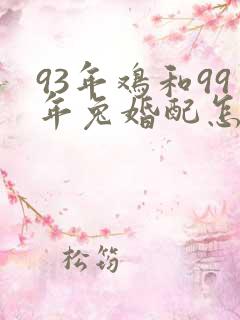 93年鸡和99
年兔婚配怎
松筠